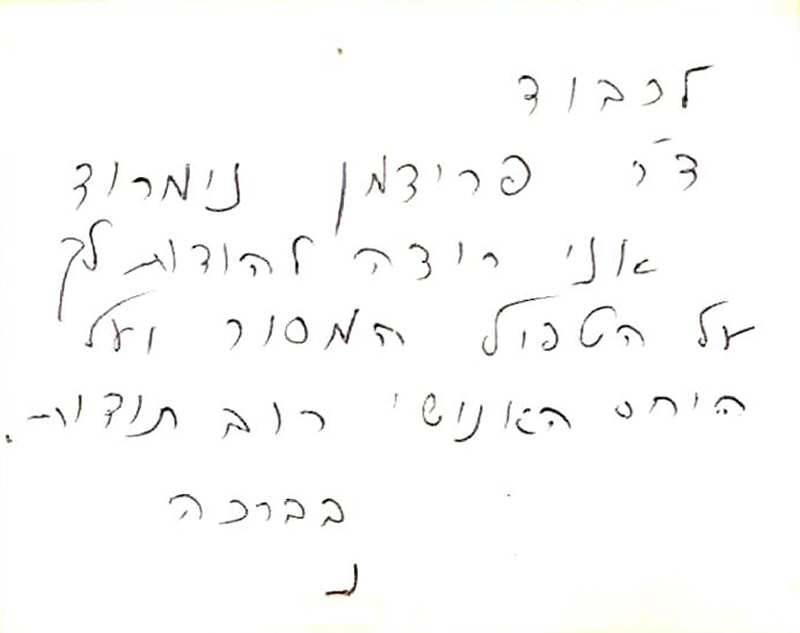 לכבוד
ד"ר פרידמן נימרוד
אני רוצה להודות לך
על הטפול המסור ועל
היחס האנושי רוב תודות.
בברכה
נ